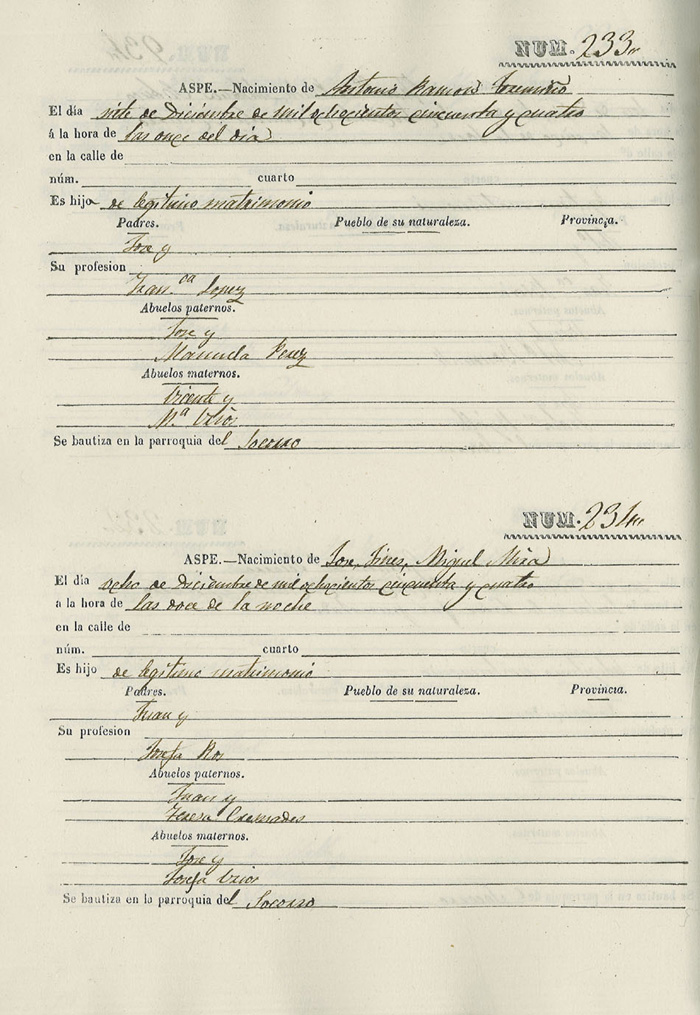 NUM. 233
ASPE.—Nacimiento de Antonio Ramon
El día siete de Diciembre de mil ochocientos cincuenta y cuatro
á la hora de las once del día
en la calle de
núm. cuarto
Es hijo de legitimo matrimonio
Padres. Pueblo de su naturaleza. Provincia.
Jose y
Su profesion
Fran.ca Lopez
Abuelos paternos.
Jose y
Manuela Perez
Abuelos maternos.
Vicente y
M.a Urios
Se bautiza en la parroquia del Socorro
NUM. 234
ASPE.—Nacimiento de Jose, Gines, Miguel Mira
El día ocho de Diciembre de mil ochocientos cincuenta y cuatro
a la hora de las doce de la noche
en la calle de
núm. cuarto
Es hijo de legitimo matrimonio
Padres. Pueblo de su naturaleza. Provincia.
Juan y
Su profesion
Josefa Ros
Abuelos paternos.
Juan y
Teresa Cremades
Abuelos maternos.
Jose y
Josefa Urios
Se bautiza en la parroquia del Socorro